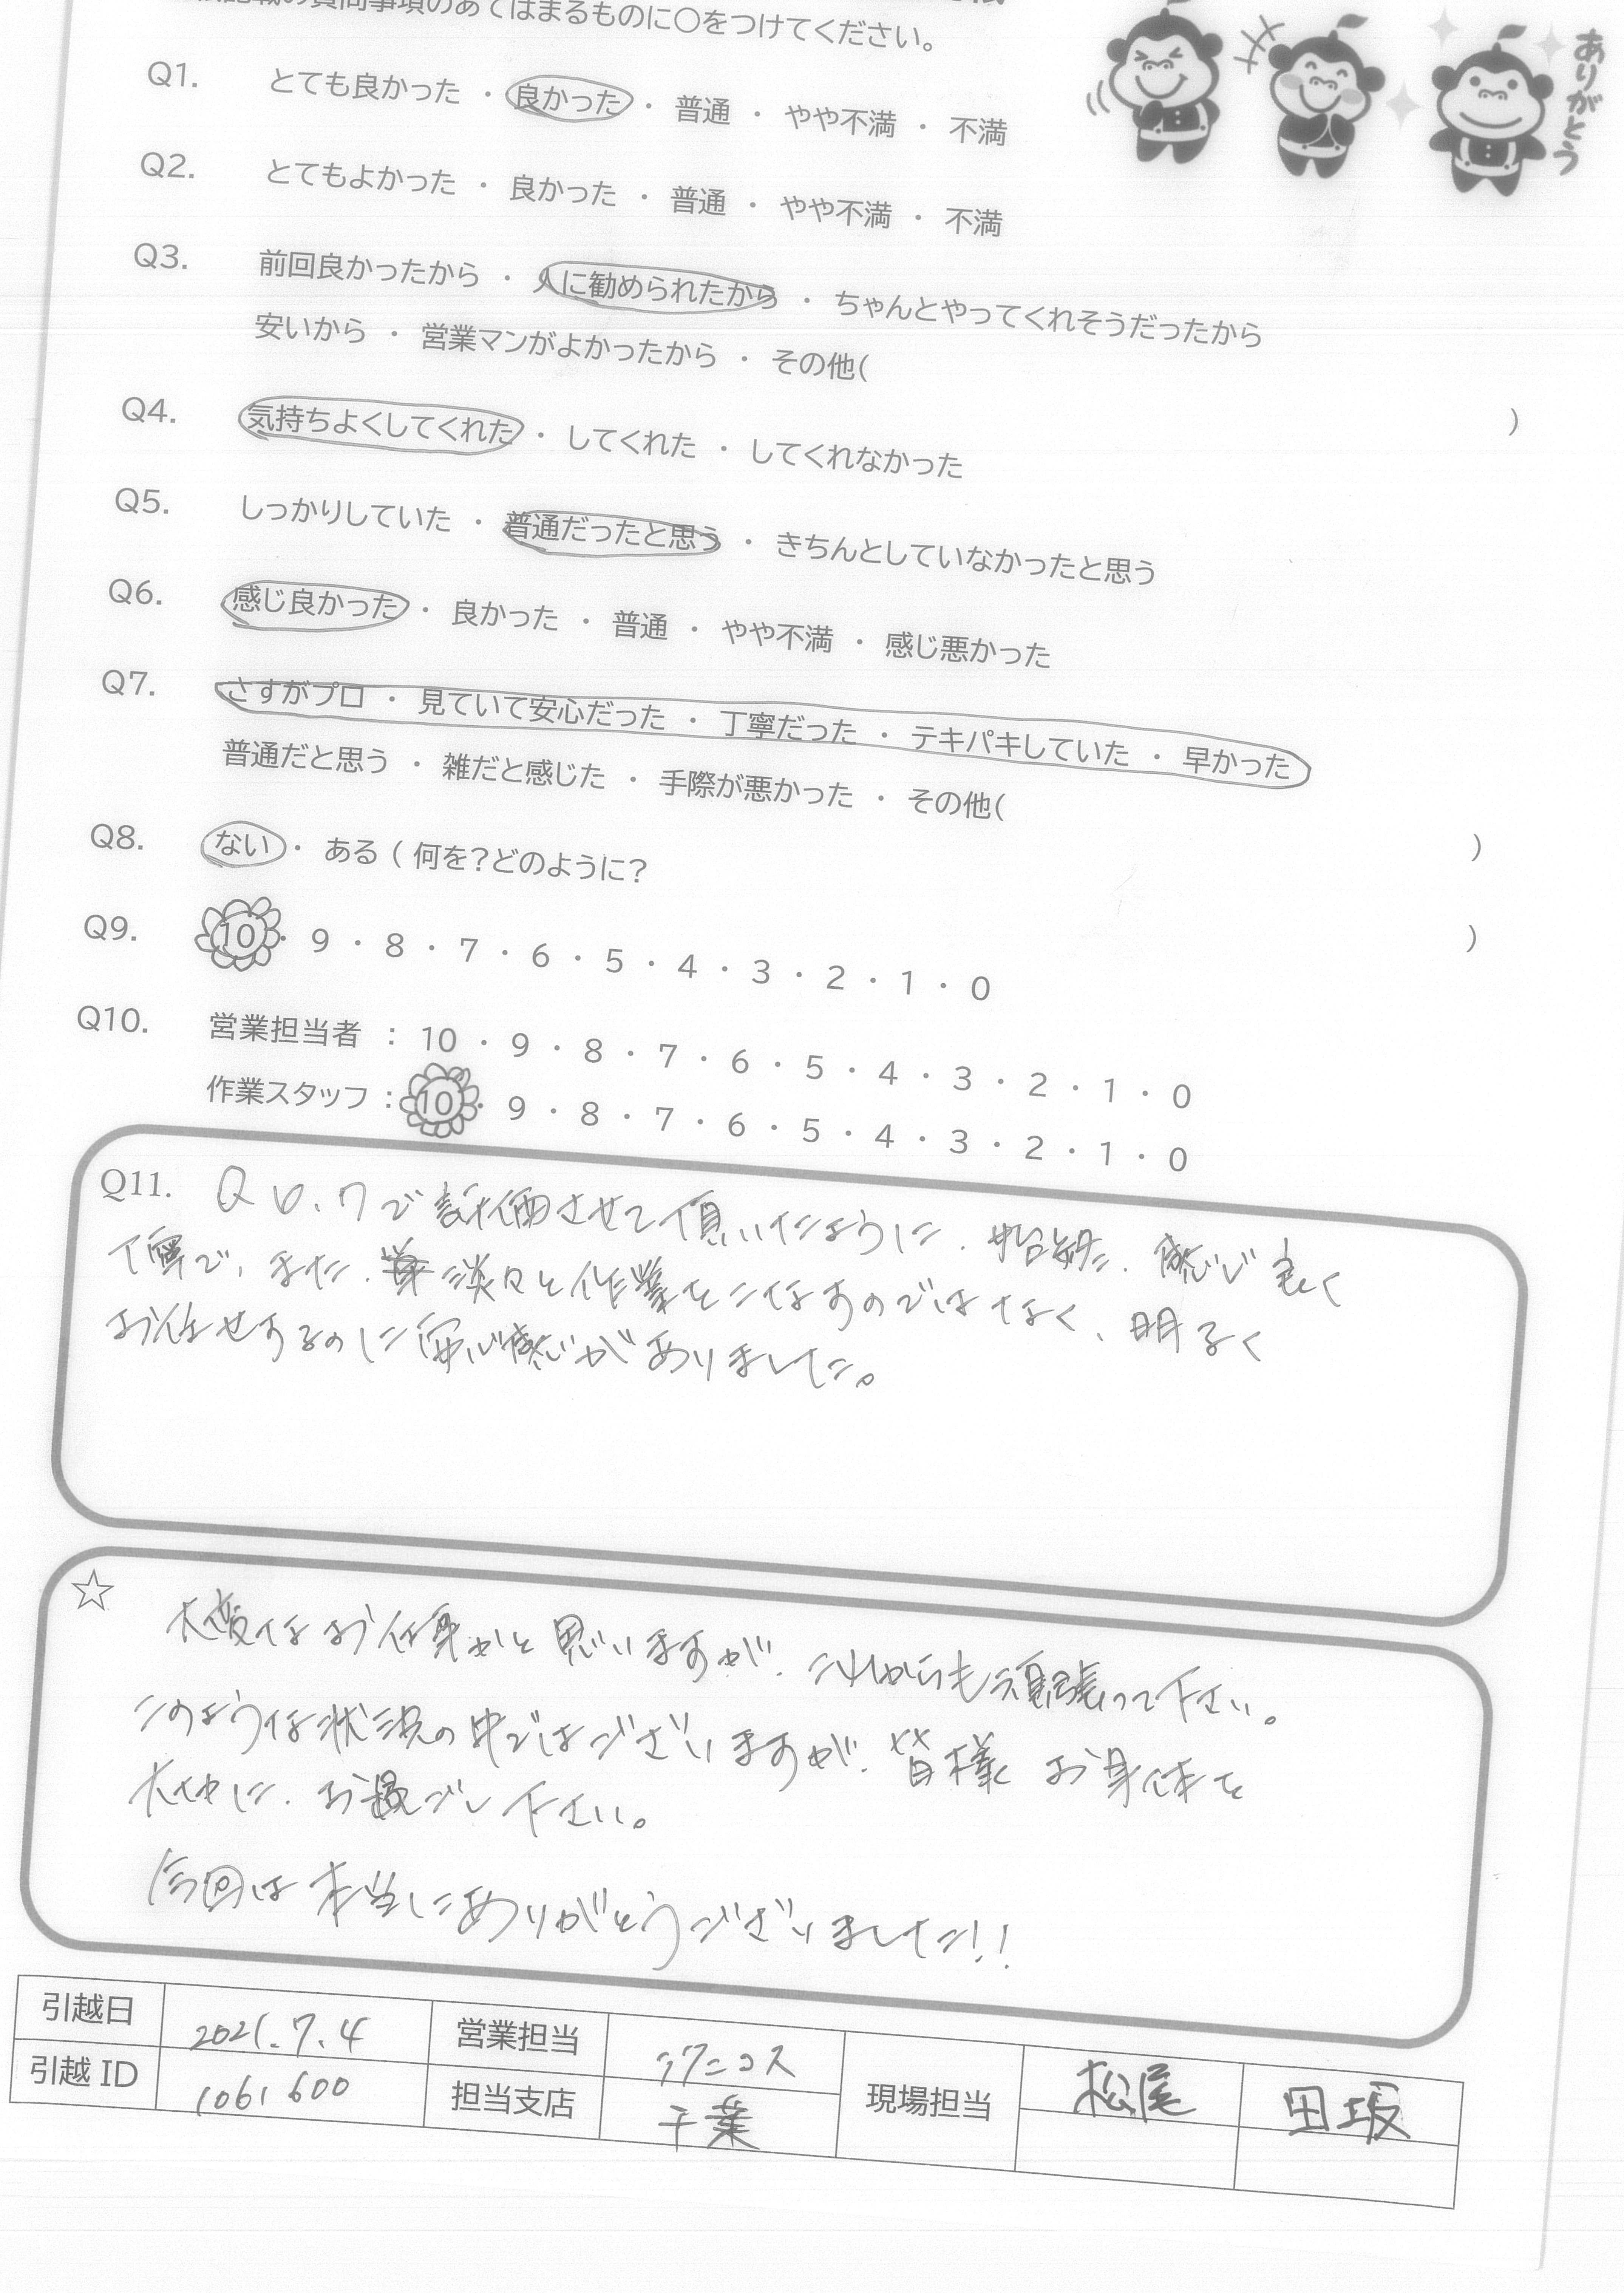 記載の質問事項のあてはまるものに〇をつけてください。
ありがとう
Q1. とても良かった ・ 良かった ・ 普通 ・ やや不満 ・ 不満
Q2. とてもよかった ・ 良かった ・ 普通 ・ やや不満 ・ 不満
Q3. 前回良かったから ・ 人に勧められたから ・ ちゃんとやってくれそうだったから
安いから ・ 営業マンがよかったから ・ その他( )
Q4. 気持ちよくしてくれた ・ してくれた ・ してくれなかった
Q5. しっかりしていた ・ 普通だったと思う ・ きちんとしていなかったと思う
Q6. 感じ良かった ・ 良かった ・ 普通 ・ やや不満 ・ 感じ悪かった
Q7. さすがプロ ・ 見ていて安心だった ・ 丁寧だった ・ テキパキしていた ・ 早かった
普通だと思う ・ 雑だと感じた ・ 手際が悪かった ・ その他( )
Q8. ない ・ ある ( 何を?どのように? )
Q9. 10 ・ 9 ・ 8 ・ 7 ・ 6 ・ 5 ・ 4 ・ 3 ・ 2 ・ 1 ・ 0
Q10. 営業担当者 : 10 ・ 9 ・ 8 ・ 7 ・ 6 ・ 5 ・ 4 ・ 3 ・ 2 ・ 1 ・ 0
作業スタッフ : 10 ・ 9 ・ 8 ・ 7 ・ 6 ・ 5 ・ 4 ・ 3 ・ 2 ・ 1 ・ 0
Q11. Q6、7で評価させて頂いたように、始終、感じ良く
丁寧で、また、淡々と作業をこなすのではなく、明るく
お任せするのに安心感がありました。
☆ 大変なお仕事かと思いますが、これからも頑張って下さい。
このような状況の中ではございますが、皆様 お身体を
大切に、お過ごし下さい。
今回は本当にありがとうございました!!
引越日 2021.7.4 営業担当 現場担当 松尾 田坂
引越 ID 1061600 担当支店 千葉